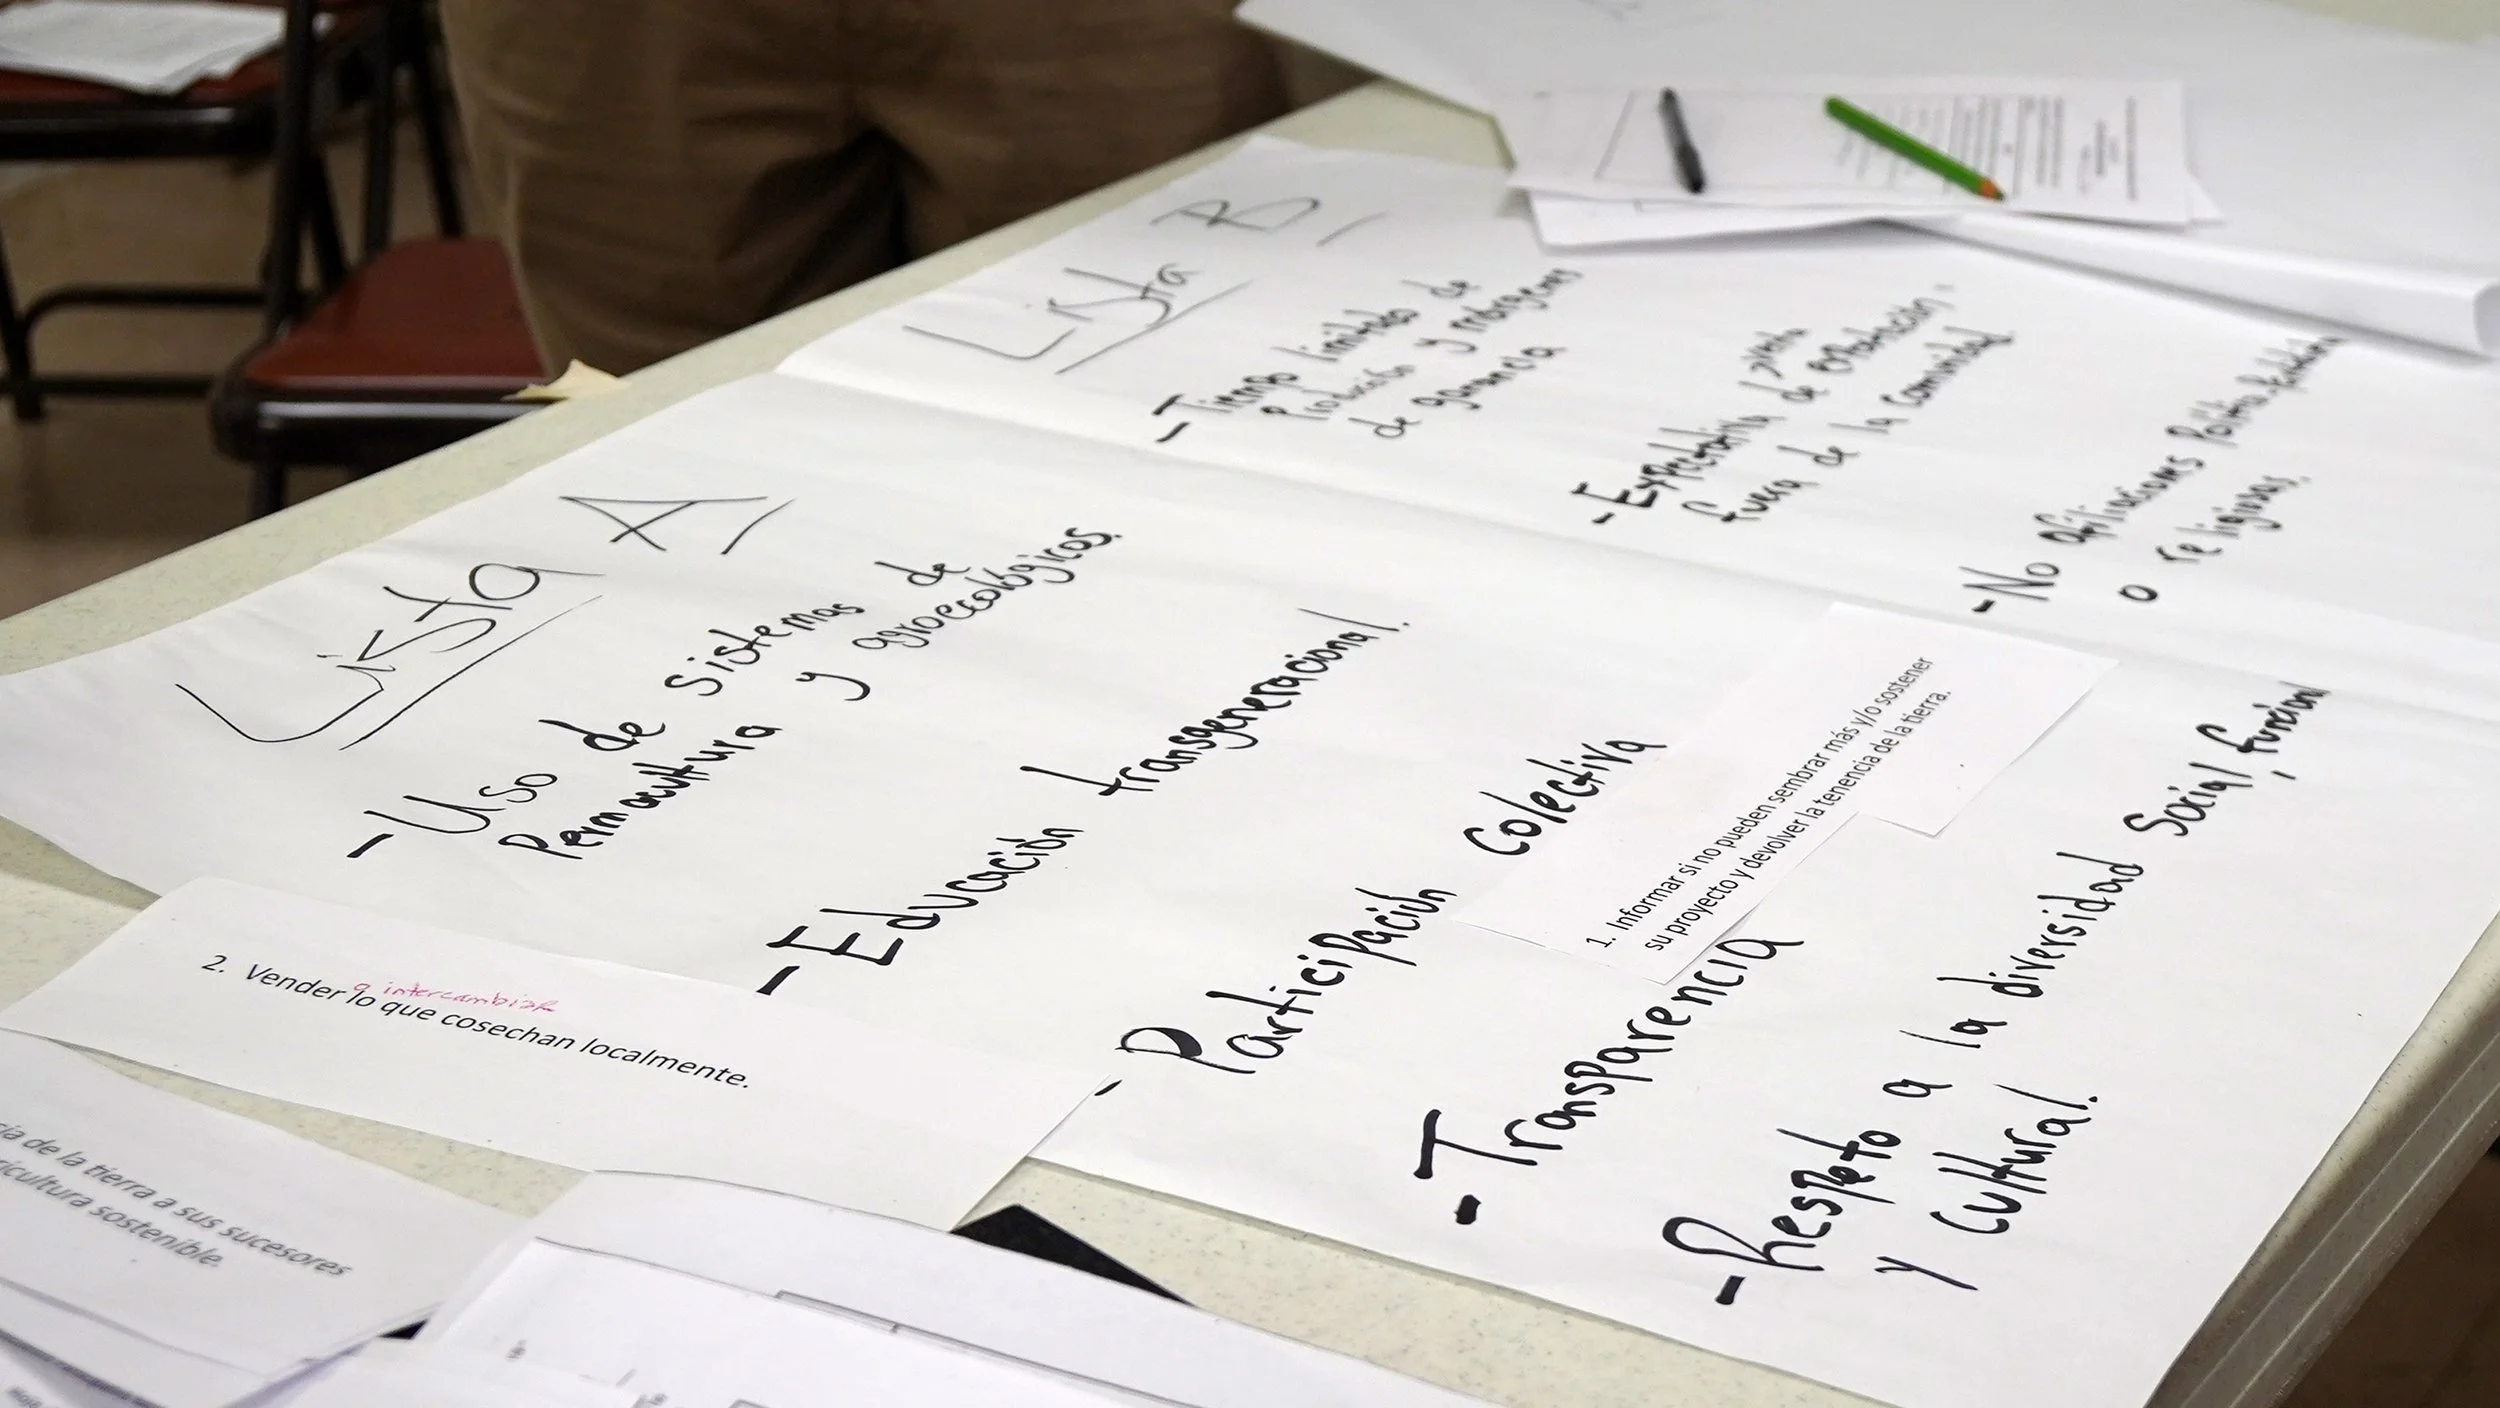 Lista B
- Tiempo limitado de
Producción y márgenes
de ganancia
- Expectativa de
venta
fuera de la comunidad
- No afiliaciones Político
o religiosas.
Lista A
- Uso de Sistemas de
Permacultura y agroecológicos.
- Educación transgeneracional.
- Participación Colectiva
- Transparencia
- Respeto a la diversidad Social, funcional
y cultural.
1. Informar si no pueden sembrar más y/o sostener
su proyecto y devolver la tenencia de la tierra.
o intercambiar
2. Vender lo que cosechan localmente.
de la tierra a sus sucesores
sostenible.